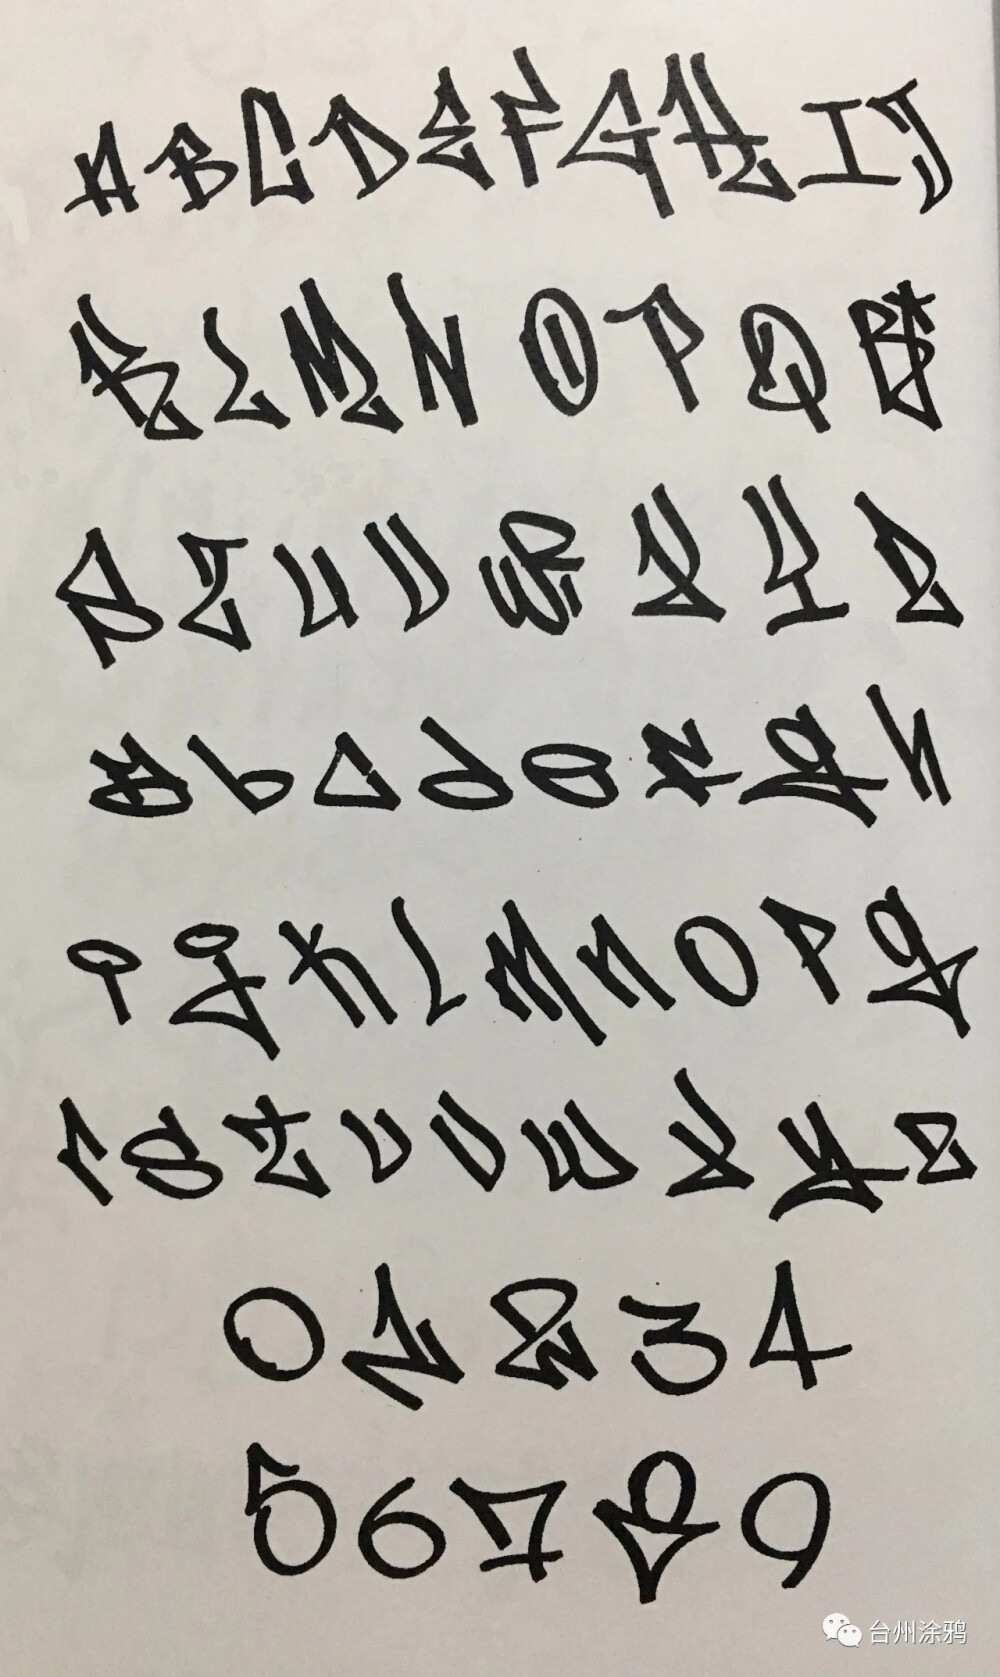 A B C D E F G H I J
K L M N O P Q R
S T U V W X Y Z
a b c d e f g h
i j k l m n o p q
r s t u v w x y z
0 1 2 3 4
5 6 7 8 9
台州涂鸦